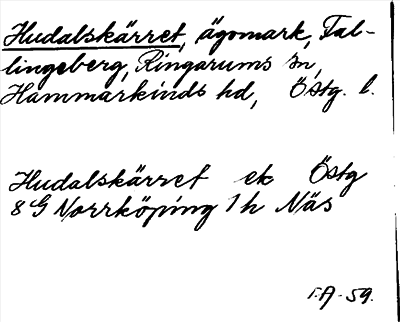 Hudalskärret, ägomark, Fal-
lingeberg, Ringarums sn,
Hammarkinds hd, Östg. l.
Hudalskärret ek Östg
8G Norrköping 1h Näs
F.A. 59.